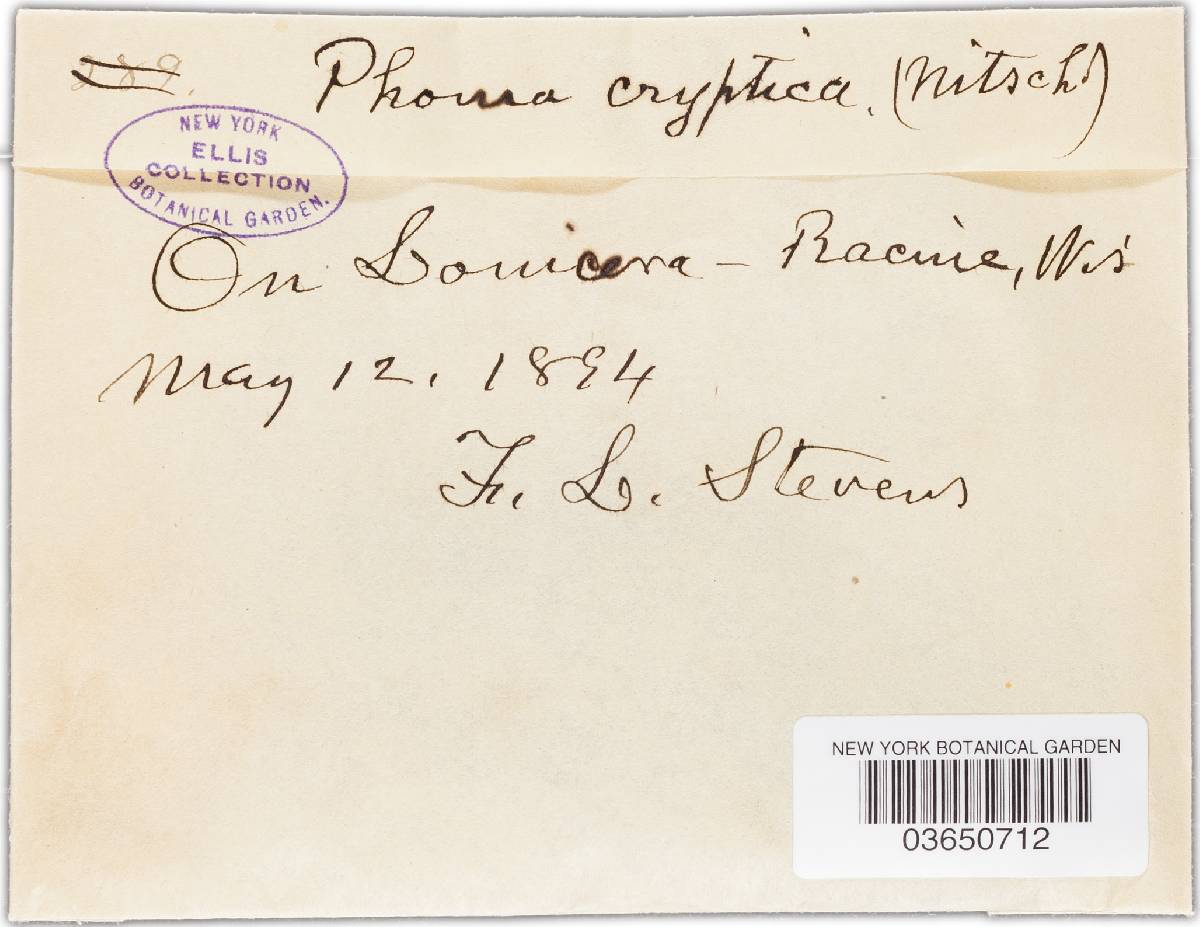 289.
Phoma cryptica. (Nitsch)
NEW YORK
ELLIS
COLLECTION
BOTANICAL GARDEN.
On Lonicera – Racine, Wis
May 12, 1894
F. L. Stevens
NEW YORK BOTANICAL GARDEN
03650712